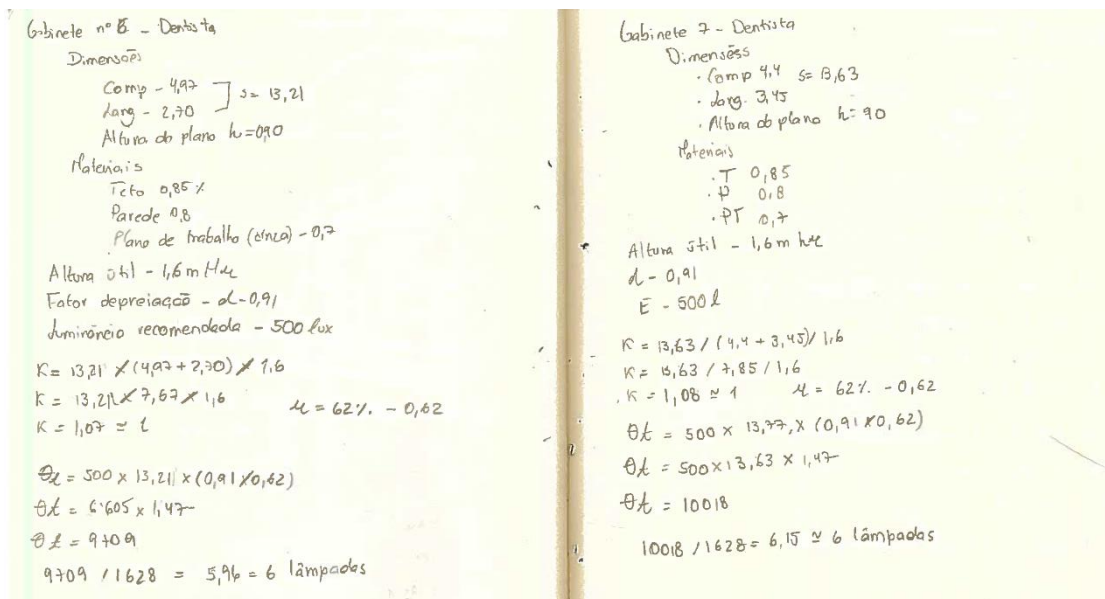 Gabinete nº 6 - Dentista
Dimensões
Comp - 4,97
Larg - 2,70
s = 13,21
Altura do plano h = 0,90
Materiais
Teto 0,85 %
Parede 0,8
Plano de trabalho (cinza) - 0,7
Altura útil - 1,6 m Hu
Fator depreiação - d - 0,91
Luminâncio recomendada - 500 lux
K = 13,21 / (4,97 + 2,70) / 1,6
K = 13,21 / 7,67 / 1,6
K = 1,07 ≃ 1
u = 62% - 0,62
θt = 500 x 13,21 x (0,91 / 0,62)
θt = 6'605 x 1,47
θt = 9709
9709 / 1628 = 5,96 = 6 lâmpadas
Gabinete 7 - Dentista
Dimensões
· Comp 4,4 s = 13,63
· Larg. 3,45
· Altura do plano h = 90
Materiais
· T 0,85
· P 0,8
· PT 0,7
Altura útil - 1,6 m hu
d - 0,91
E - 500 l
K = 13,63 / (4,4 + 3,45) / 1,6
K = 13,63 / 7,85 / 1,6
K = 1,08 ≃ 1 u = 62% - 0,62
θt = 500 x 13,77, x (0,91 / 0,62)
θt = 500 x 13,63 x 1,47
θt = 10018
10018 / 1628 = 6,15 ≃ 6 lâmpadas